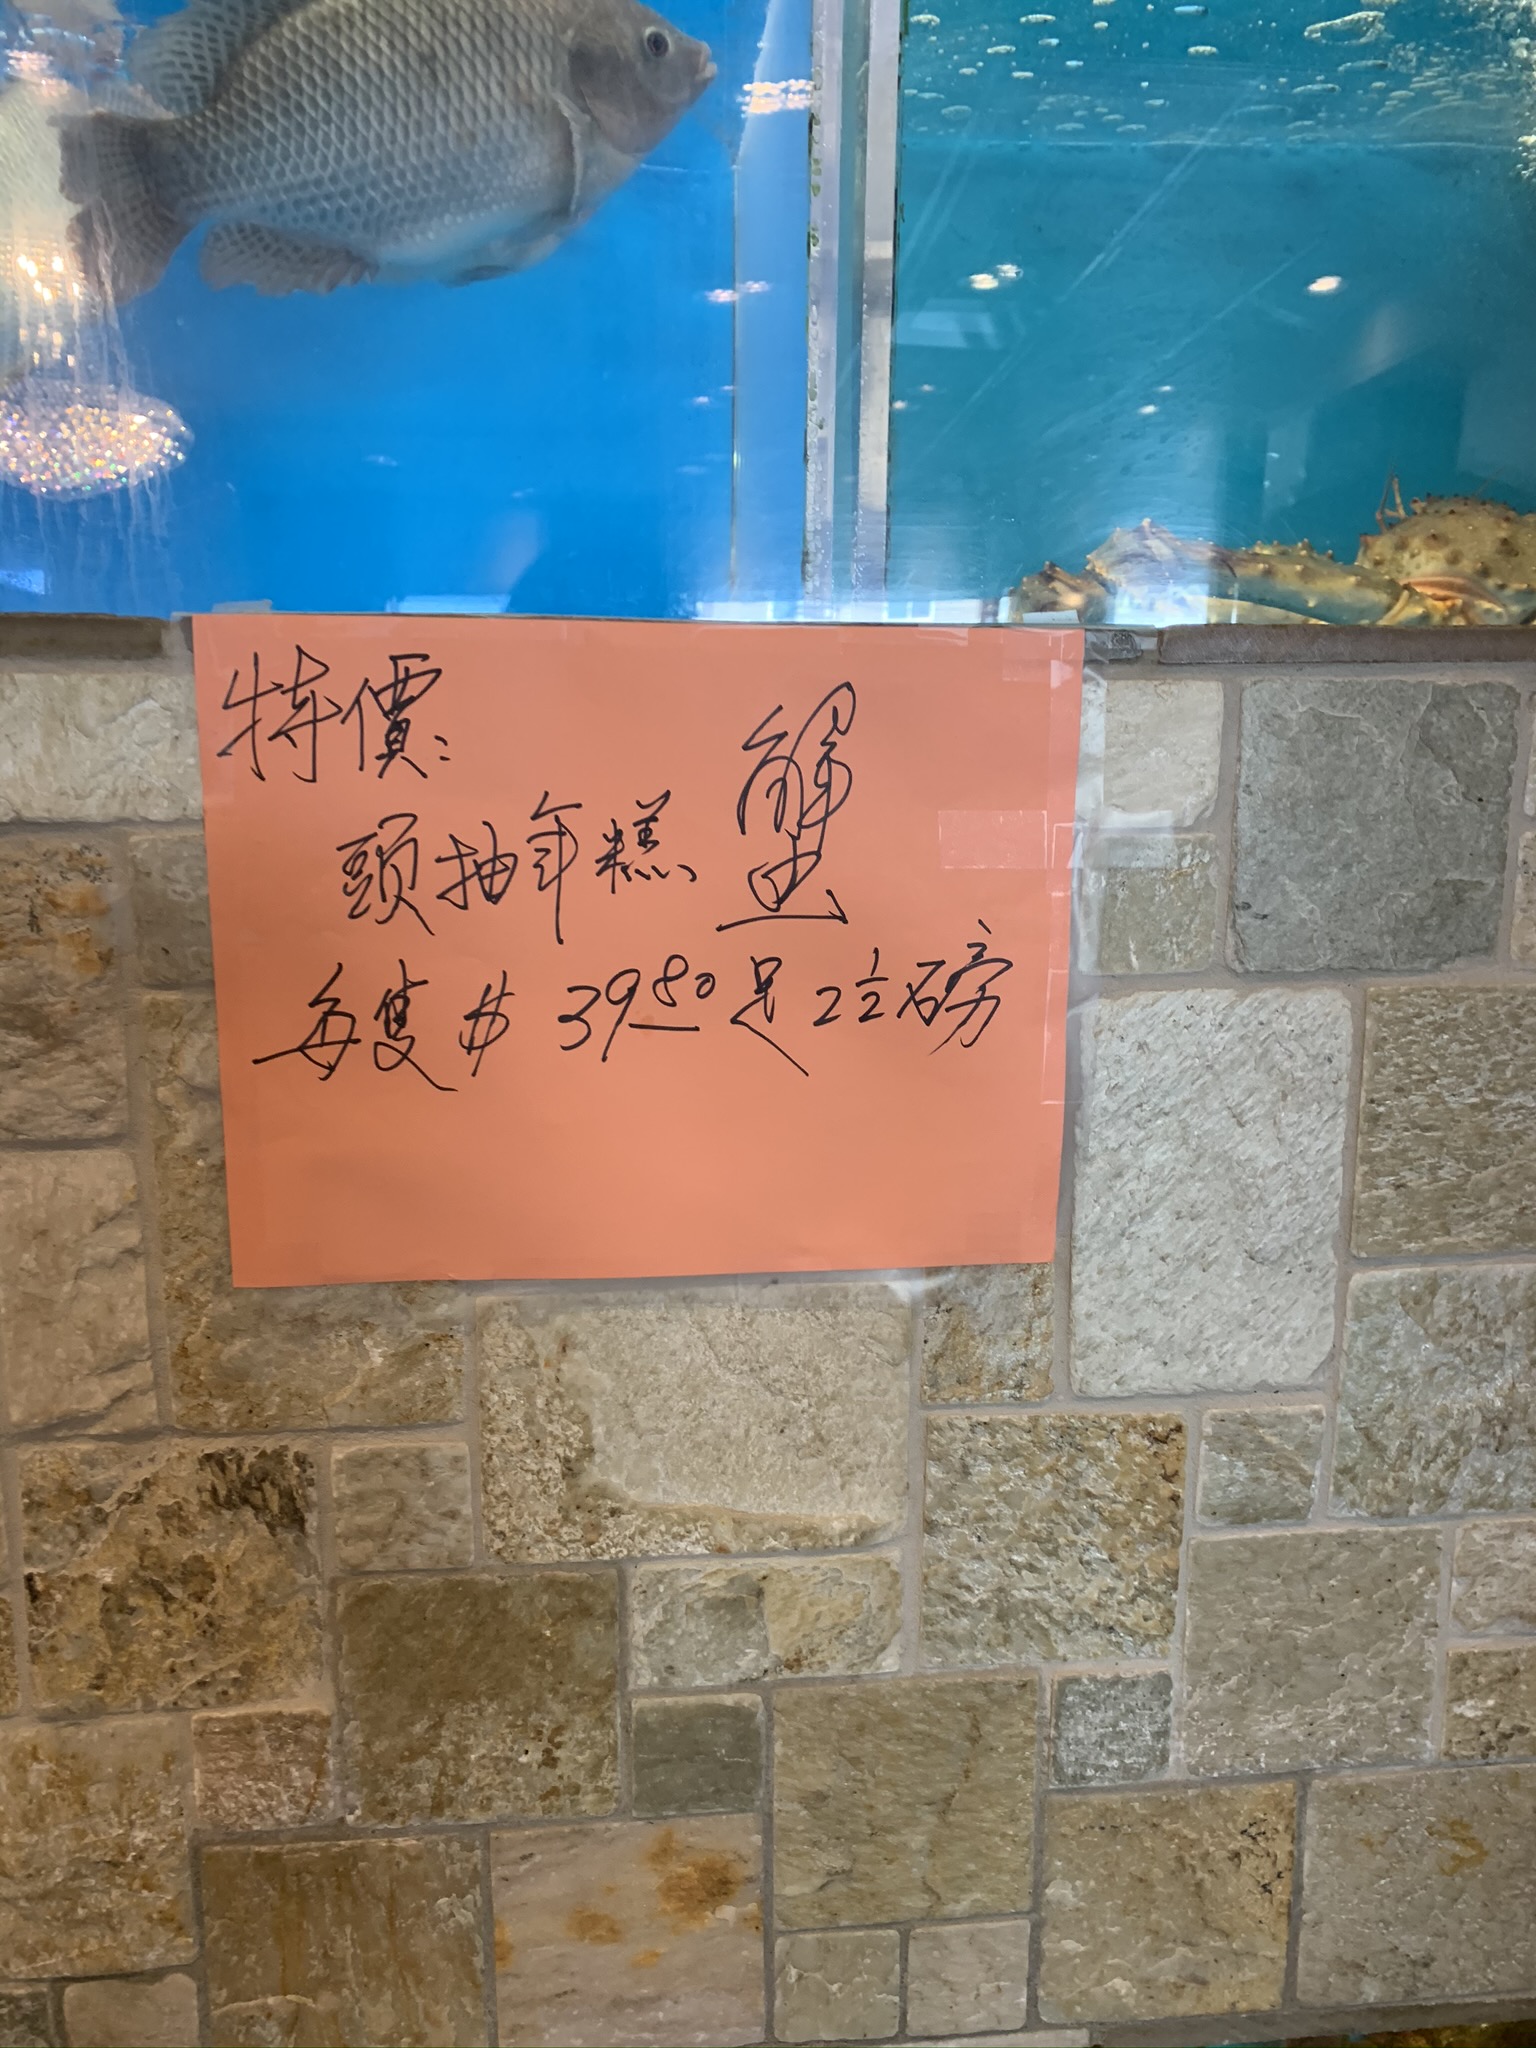 特價:
頭抽年糕蟹
每隻$39.80足2½磅